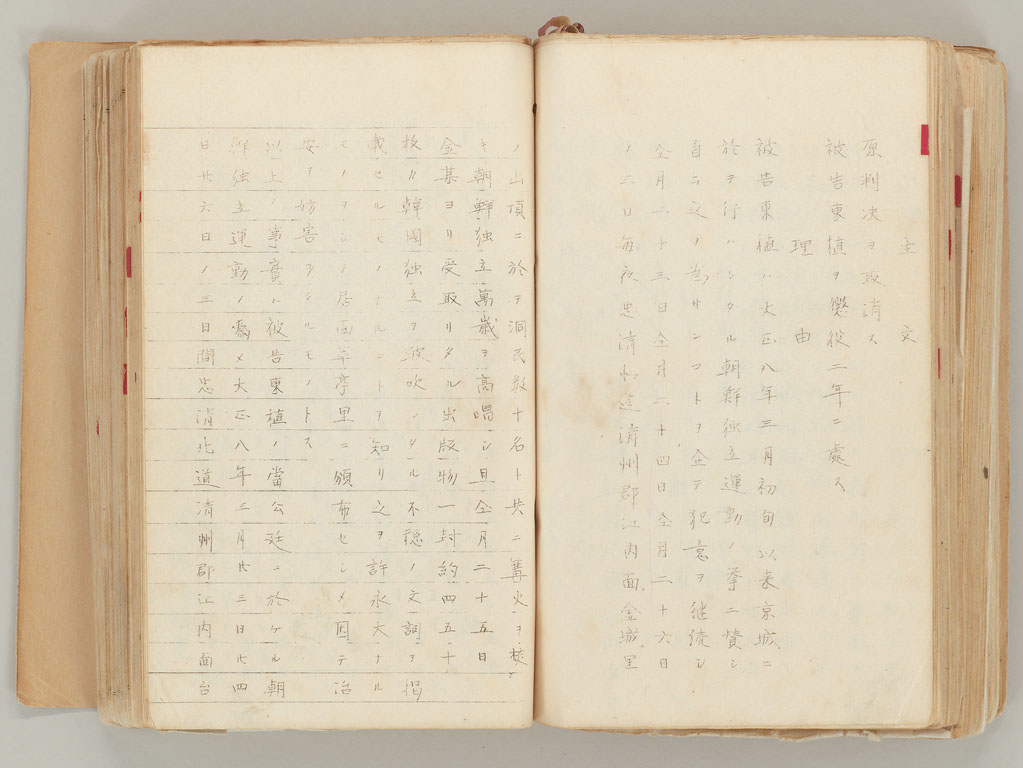 主文
原判決ヲ取消ス
被告東植ヲ懲役二年ニ處ス
理由
被告東植ハ大正八年三月初旬以来京城ニ
於テ行ハレタル朝鮮独立運動ノ挙ニ賛シ
自ラ之ヲ為サンコトヲ企テ犯意ヲ継続シ
仝月二十三日仝月二十四日仝月二十六日
ノ三日毎夜忠清北道清州郡江内面金城里
ノ山頂ニ於テ洞民数十名ト共ニ篝火ヲ焚
キ朝鮮独立萬歳ヲ高唱シ且仝月二十五日
金某ヨリ受取リタル出版物一封約四五十
枚ガ韓國独立ヲ鼓吹シタル不穏ノ文詞ヲ掲
載セルモノナルコトヲ知リ之ヲ許永大ナル
モノヲシテ居面草亭里ニ頒布セシメ因テ治
安ヲ妨害シタルモノトス
以上ノ事實ハ被告東植ノ當公廷ニ於ケル朝
鮮独立運動ノ為メ大正八年三月廿三日廿四
日廿六日ノ三日間忠清北道清州郡江内面台